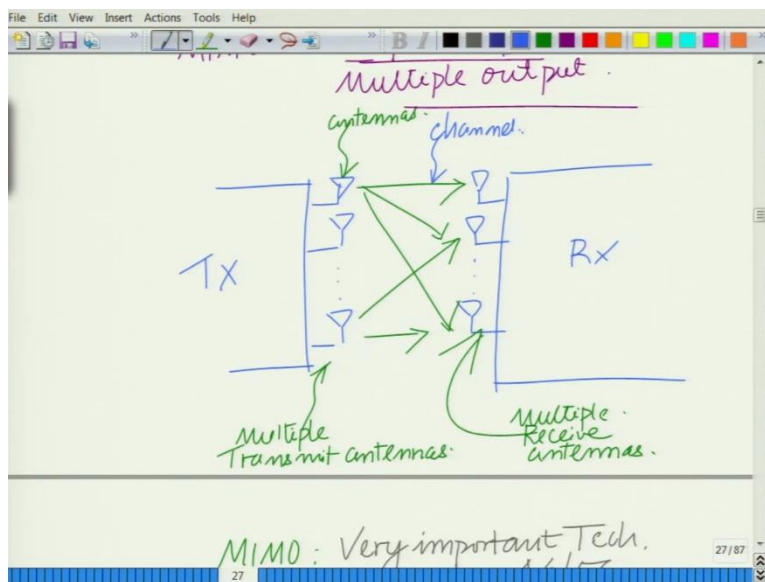 File Edit View Insert Actions Tools Help
B I
Multiple output.
antennas.
channel.
TX
Rx
Multiple
Transmit antennas.
Multiple.
Receive
antennas.
MIMO: Very important Tech.
27/87
27